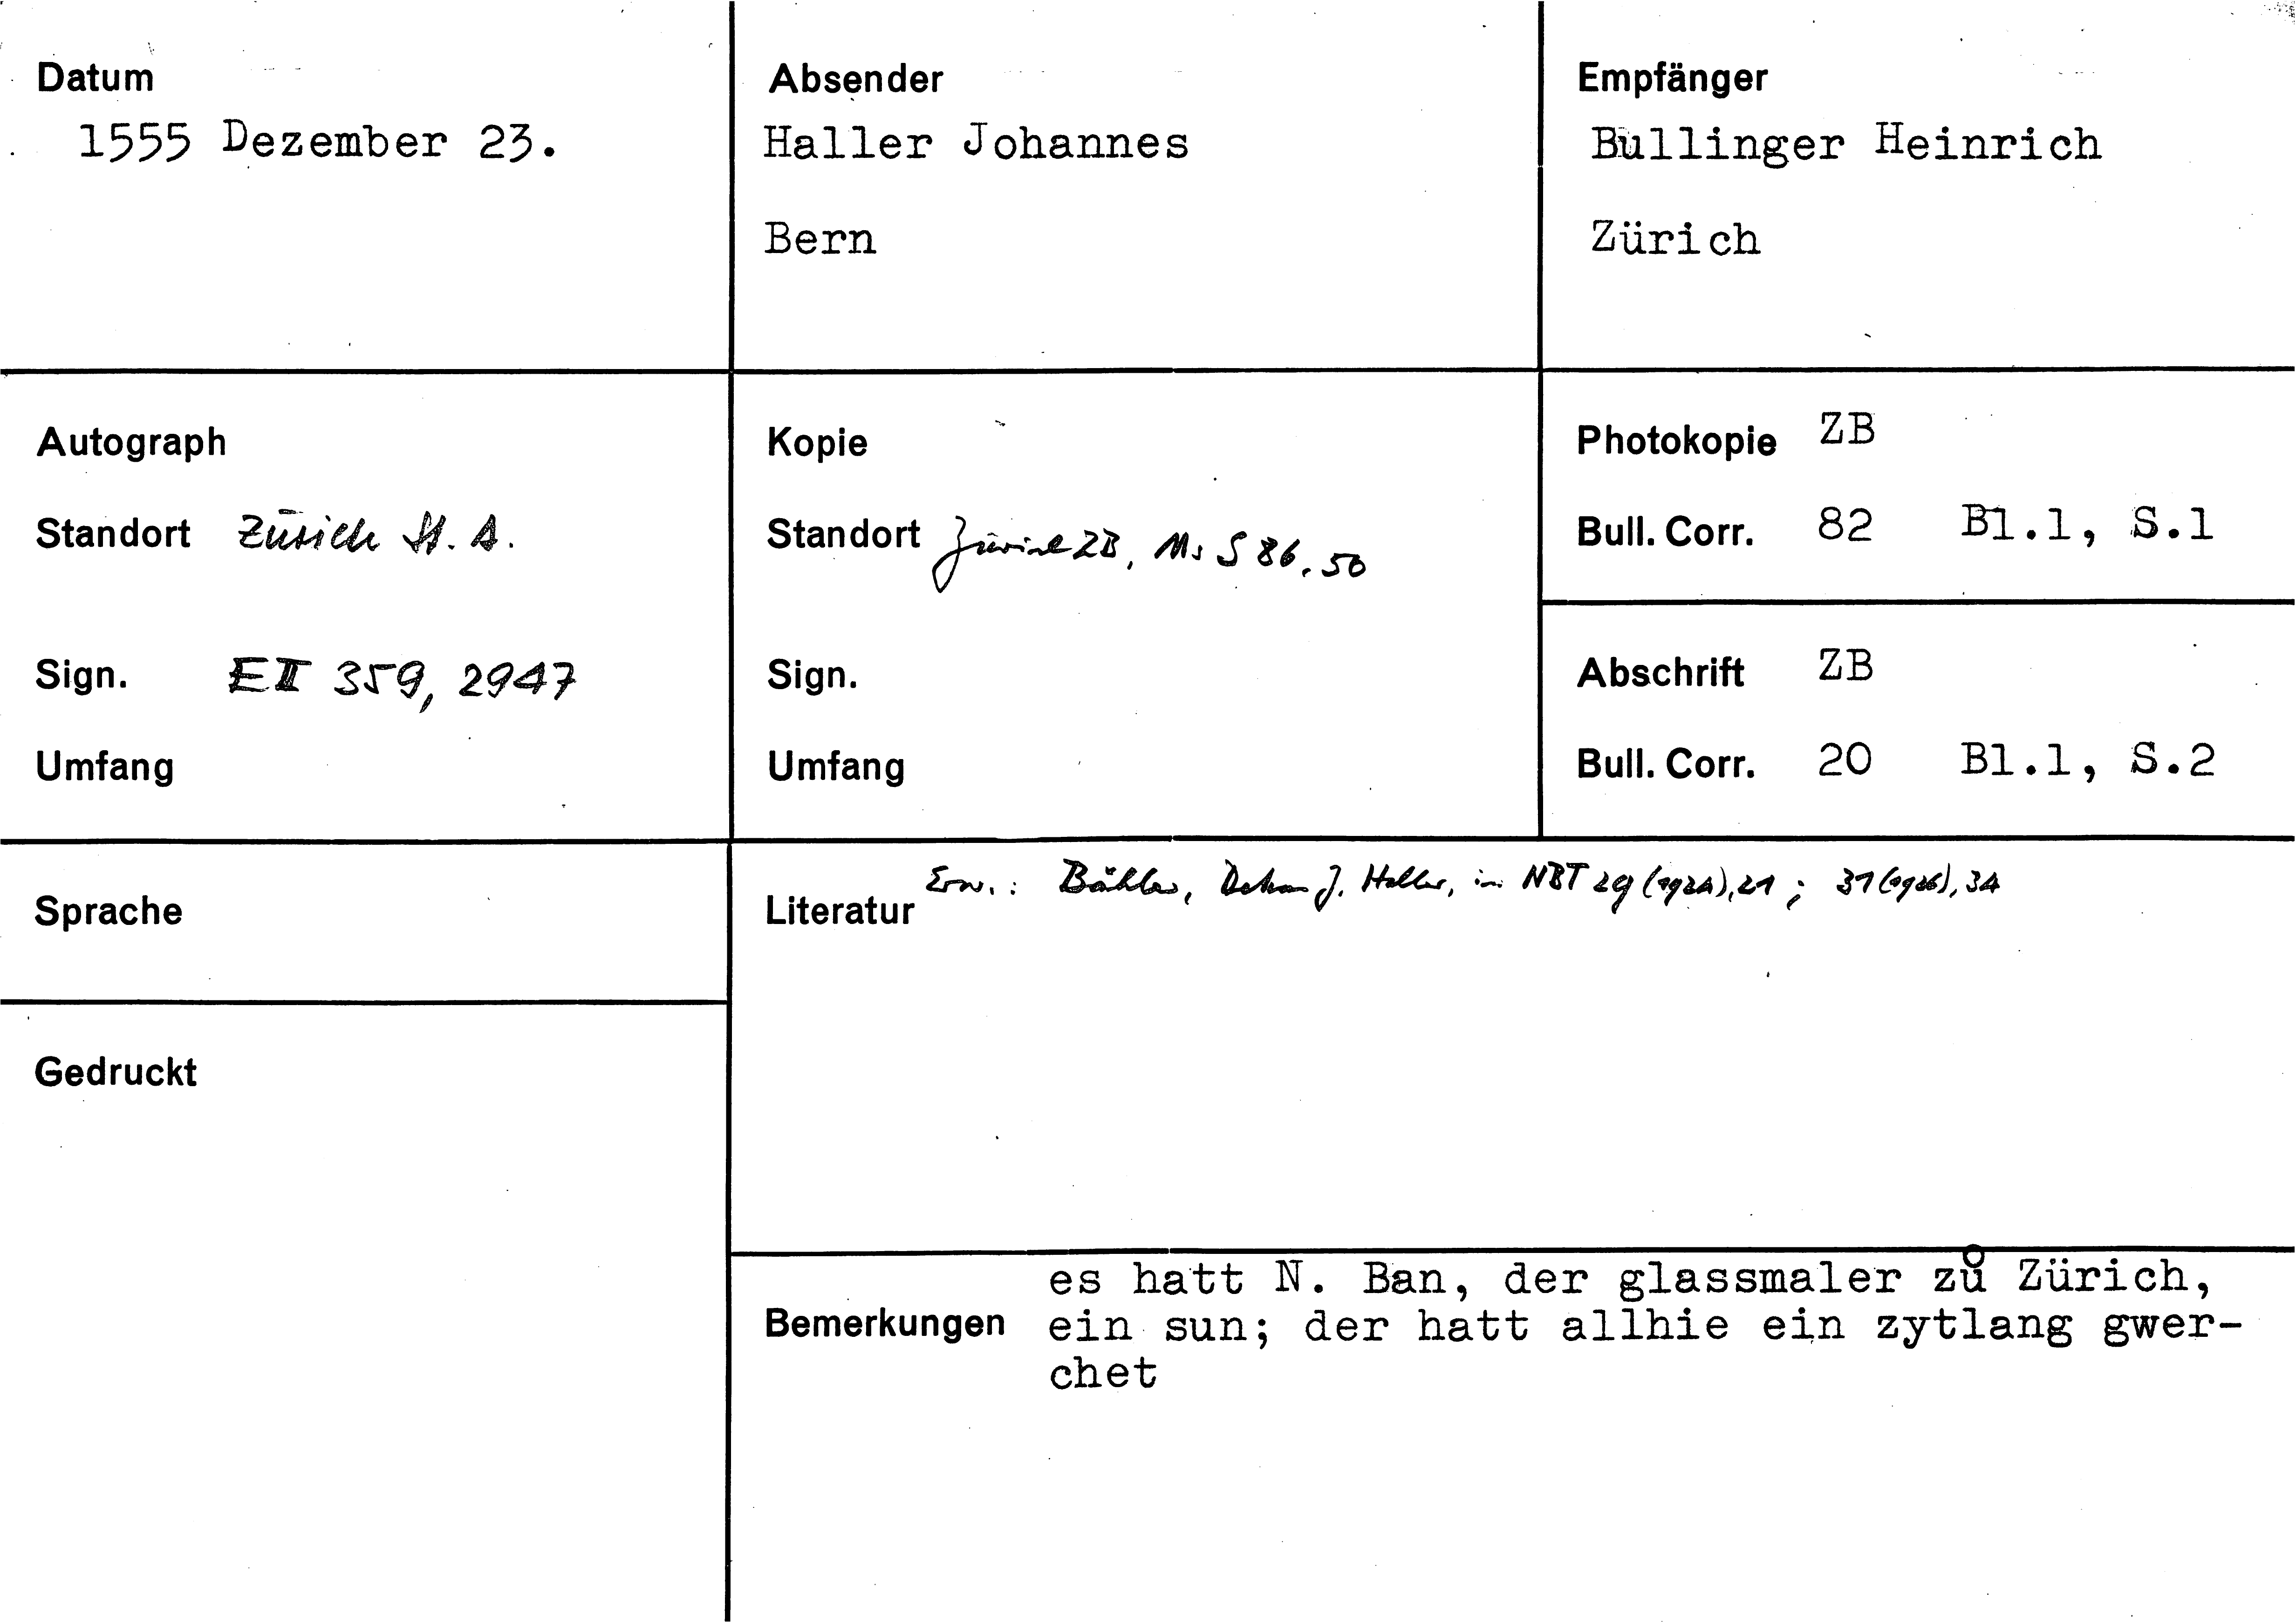 Datum
1555 Dezember 23.
Absender
Haller Johannes
Bern
Empfänger
Bullinger Heinrich
Zürich
Autograph
Standort Zürich St. A.
Sign. E II 359, 2947
Umfang
Kopie
Standort Zürich ZB, Ms S 86, 50
Sign.
Umfang
Photokopie ZB
Bull. Corr. 82 Bl.1, S.1
Abschrift ZB
Bull. Corr. 20 Bl.1, S.2
Sprache
Gedruckt
Literatur Erw.: Bähler, Dekan J. Haller, in NBT 29 (1924), 21; 31 (1926), 34
Bemerkungen
es hatt N. Ban, der glassmaler zů Zürich,
ein sun; der hatt allhie ein zytlang gwer-
chet